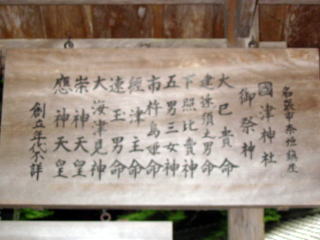 名張市奈垣鎮座
國津神社
御祭神
大巳貴命
建速須之男命
下照比賣神
五男三女神
市杵島姫命
經津主命
速玉男命
大海津見神
崇神天皇
應神天皇
創立年代不詳